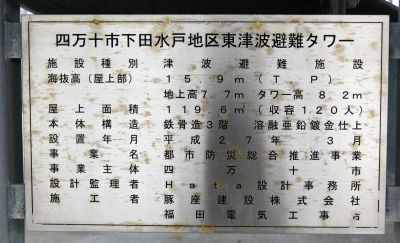 四万十市下田水戸地区東津波避難タワー
施設種別 津波避難施設
海抜高(屋上部) 15.9m(TP)
地上高7.7m タワー高8.2m
屋上面積 119.6㎡(収容120人)
本体構造 鉄骨造3階 溶融亜鉛鍍金仕上
設置年月 平成27年3月
事業名 都市防災総合推進事業
事業主体 四万十市
設計監理者 Hata設計事務所
施工者 豚座建設株式会社
福田電気工事